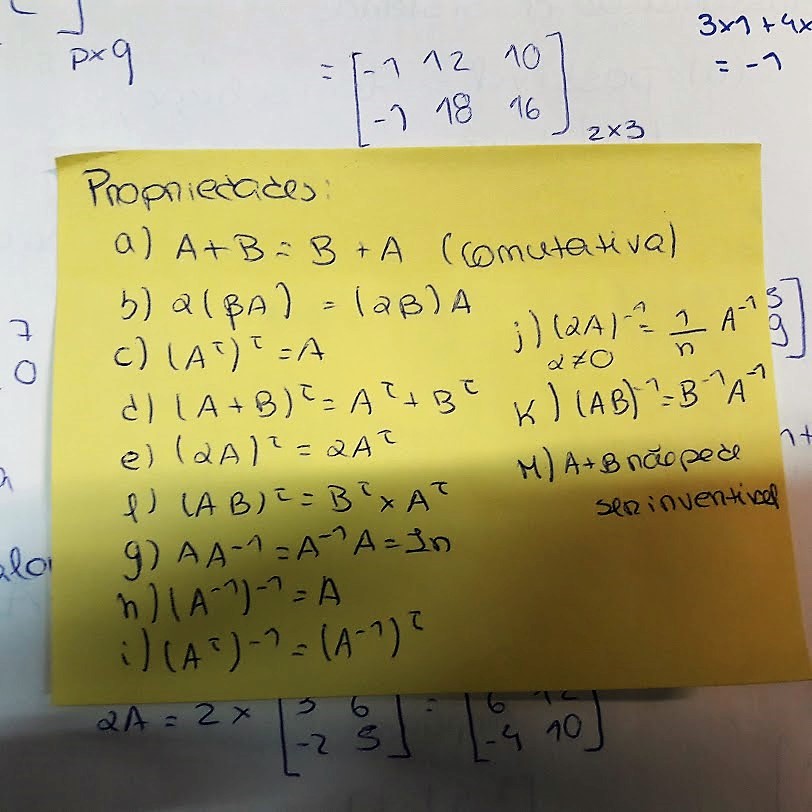 p×q
= [-1 12 10
-1 18 16] 2×3
3×1 + 4×
= -1
Propriedades:
a) A + B = B + A (comutativa)
b) α(βA) = (αB)A
c) (Aᵀ)ᵀ = A
d) (A + B)ᵀ = Aᵀ + Bᵀ
e) (αA)ᵀ = αAᵀ
f) (AB)ᵀ = Bᵀ × Aᵀ
g) AA⁻¹ = A⁻¹A = In
h) (A⁻¹)⁻¹ = A
i) (Aᵀ)⁻¹ = (A⁻¹)ᵀ
j) (αA)⁻¹ = 1/n A⁻¹
α≠0
K) (AB)⁻¹ = B⁻¹A⁻¹
M) A+B não pede
ser inventivel
7
0
5
9]
alor
2A = 2 × [3 6 = [6 12
-2 5] -4 10]